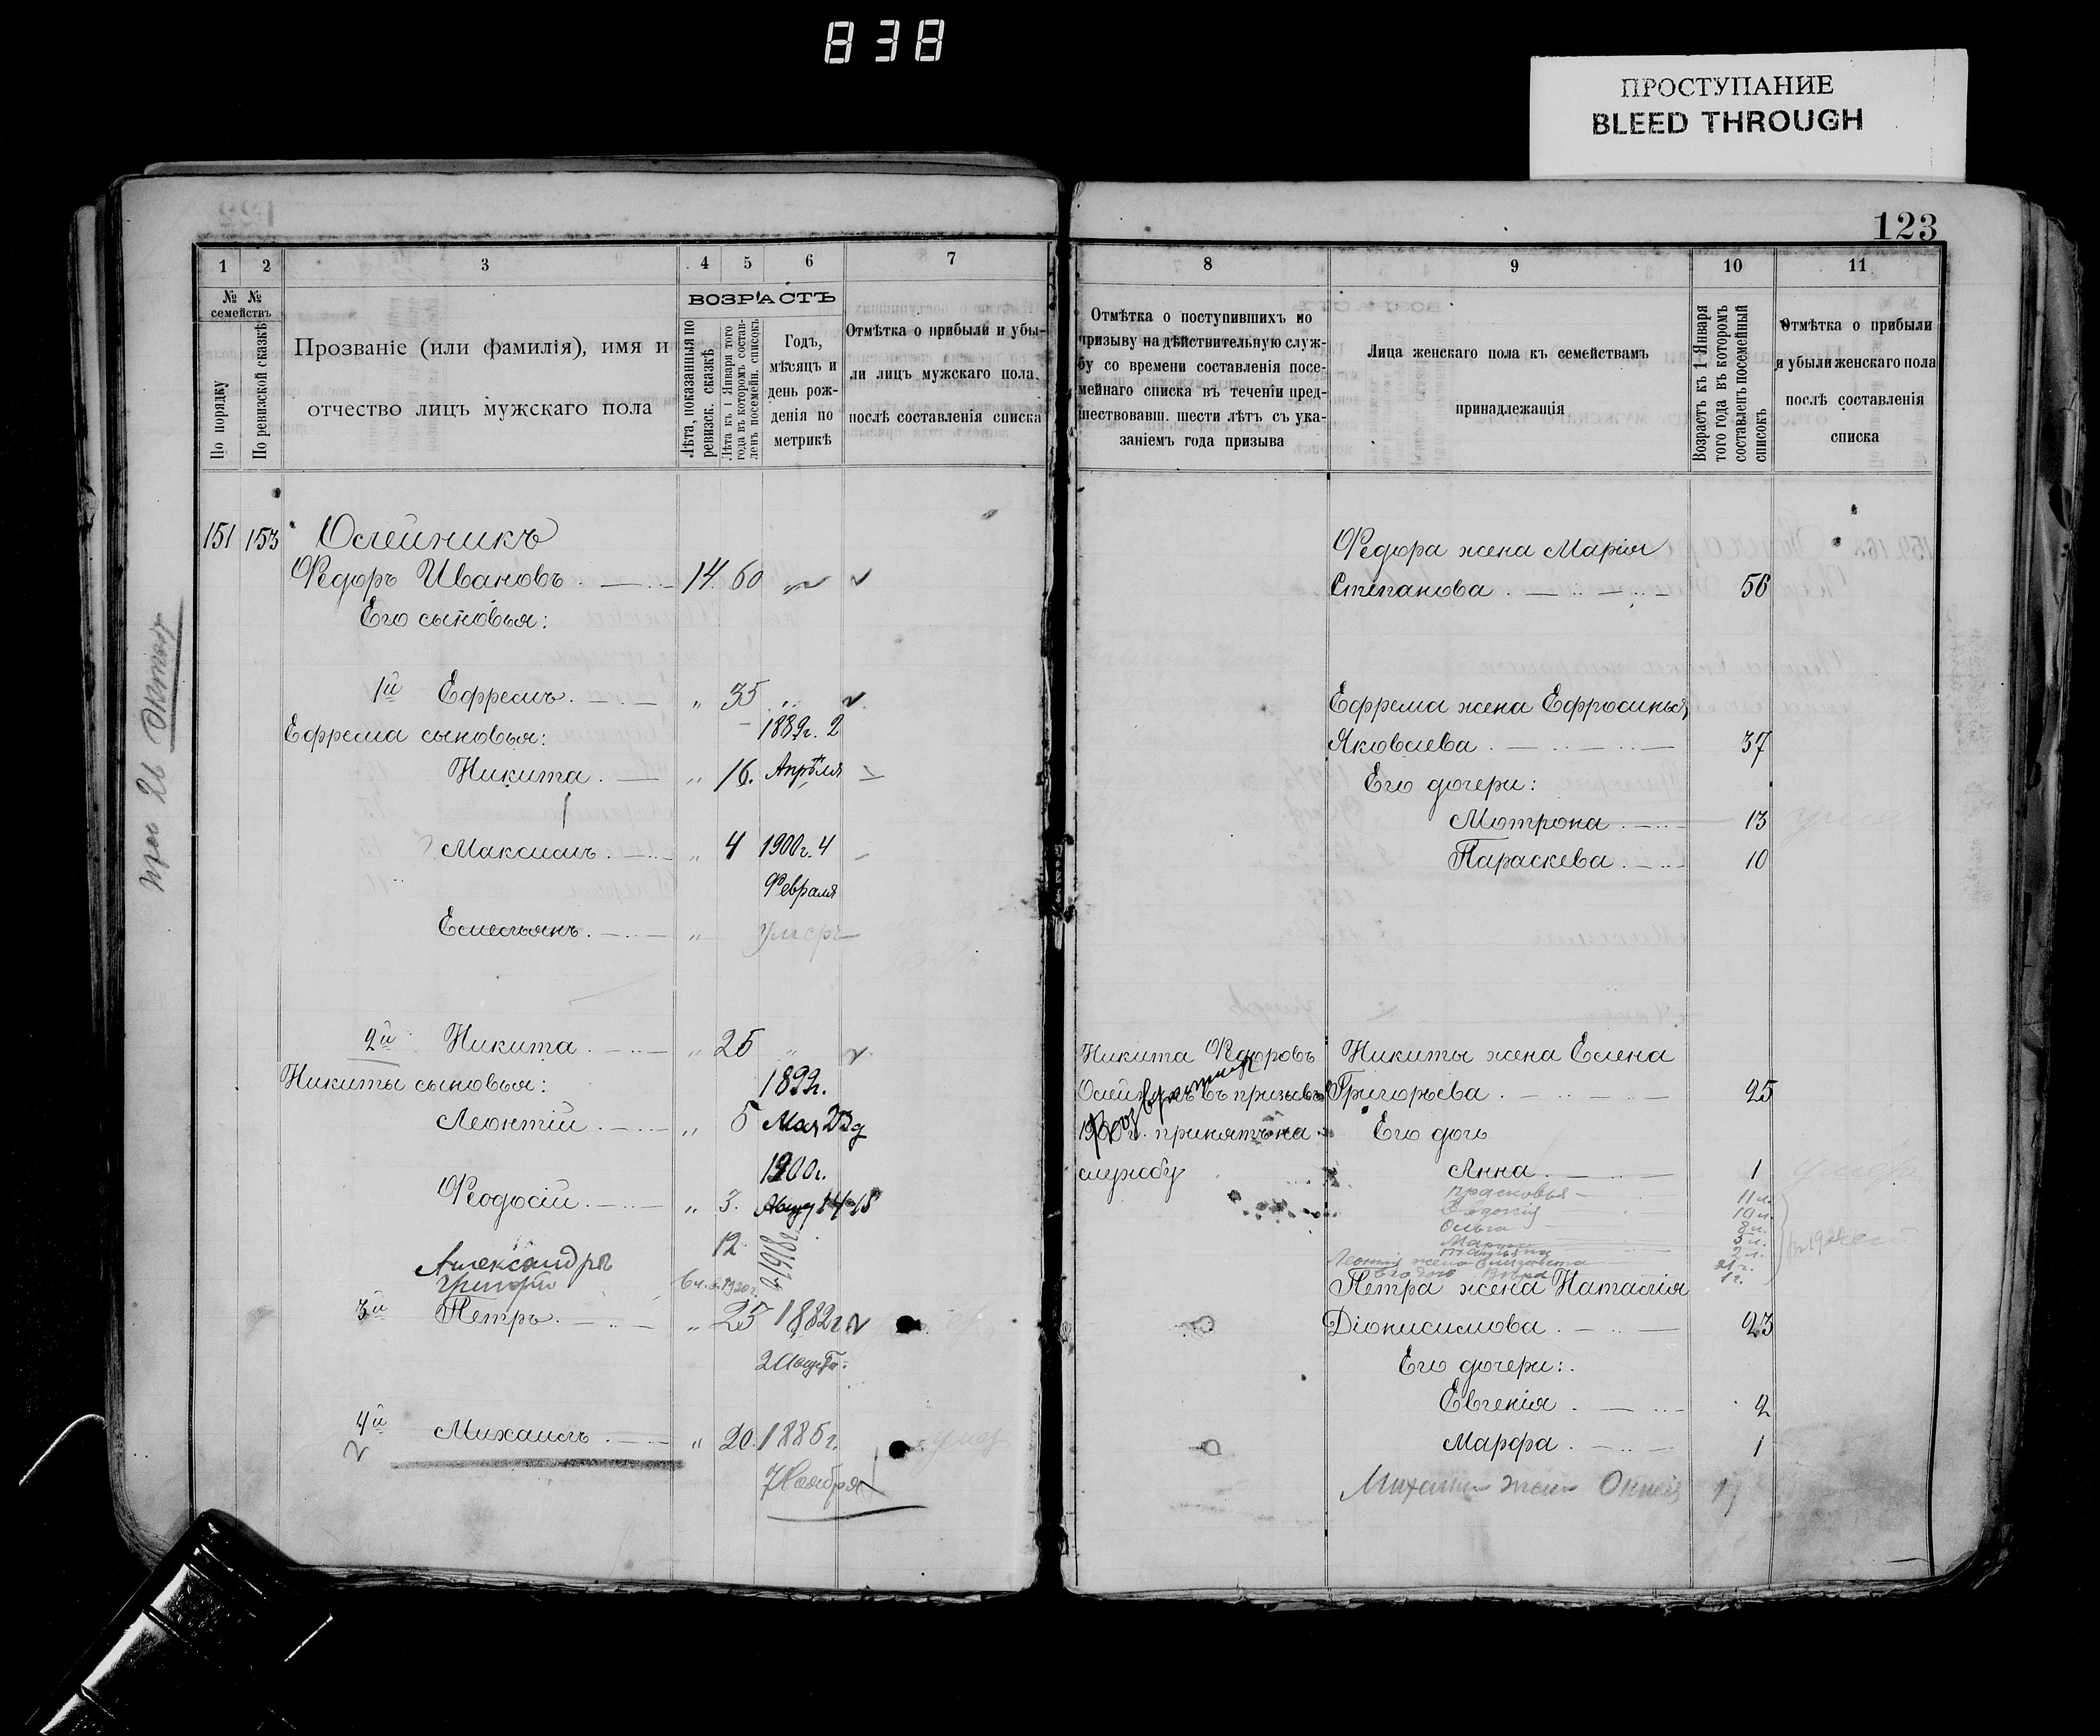 838
ПРОСТУПАНИЕ
BLEED THROUGH
123
1 2 3 4 5 6 7
№ № семействъ
По порядку
По ревизской сказкѣ
Прозваніе (или фамилія), имя и
отчество лицъ мужскаго пола
ВОЗРАСТЪ
Лѣта, показанныя по
ревизск. сказкѣ
Лѣта къ 1 Января того
года въ которомъ состав-
ленъ посемейн. списокъ
Годъ,
мѣсяцъ и
день рож-
денія по
метрикѣ
Отмѣтка о прибыли и убы-
ли лицъ мужскаго пола
послѣ составленія списка
151 153 Олейникъ
Федоръ Ивановъ 14 60
Его сыновья:
1й Ефремъ „ 35 „
Ефрема сыновья: 1889г. 2
Никита „ 16. Апрѣля
Максимъ „ 4 1900г. 4
Февраля
Емельянъ „ умеръ
2й Никита „ 25 „
Никиты сыновья: 1899г.
Леонтій „ 5 Мая 23д
1900г.
Феодосій „ 3.
Александръ 12
3й Петръ „ 25 1882г
2 Августа
4й Михаилъ „ 20. 1885г.
7 Ноября
26 Октября
8 9 10 11
Отмѣтка о поступившихъ по
призыву на дѣйствительную служ-
бу со времени составленія посе-
мейнаго списка въ теченіи пред-
шествовавш. шести лѣтъ съ ука-
заніемъ года призыва
Лица женскаго пола къ семействамъ
принадлежащія
Возрастъ къ 1 Января
того года въ которомъ
составленъ посемейный
списокъ
Отмѣтка о прибыли
и убыли женскаго пола
послѣ составленія
списка
Федора жена Марія
Степанова 56
Ефрема жена Ефросинья
Яковлева 37
Его дочери:
Мотрона 13
Параскева 10
Никита Федоровъ
Олейникъ въ призывъ
1900г. принятъ на
службу
Никиты жена Елена
Григорьева 25
Его дочь
Анна 1
Прасковья 11 л.
Евдокія 10 л.
Ольга 8 л.
5 л.
Татьяна 2 л.
Леонтія жена Елизавета 21 г.
Его дочь Вѣра 1 г.
Петра жена Наталія
Діонисимова 23
Его дочери:
Евгенія 2
Марфа 1
Михаила жена